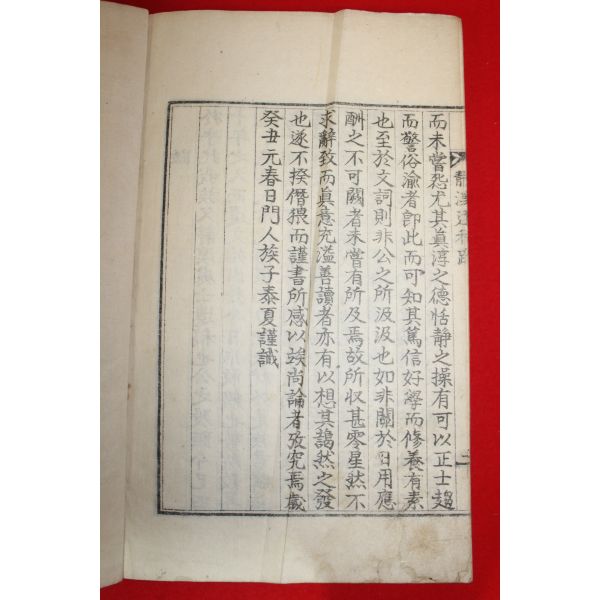 靜
遺稿跋
而未嘗怨尤其眞淳之德恬靜之操有可以正士趨
而警俗渝者卽此而可知其篤信好學而修養有素
也至於文詞則非公之所汲汲也如非關於日用應
酬之不可闕者未嘗有所及焉故所收甚零星然不
求辭致而眞意充溢善讀者亦有以想其藹然之發
也遂不揆僭猥而謹書所感以竢尚論者攷究焉歲
癸丑元春日門人族子泰夏謹識